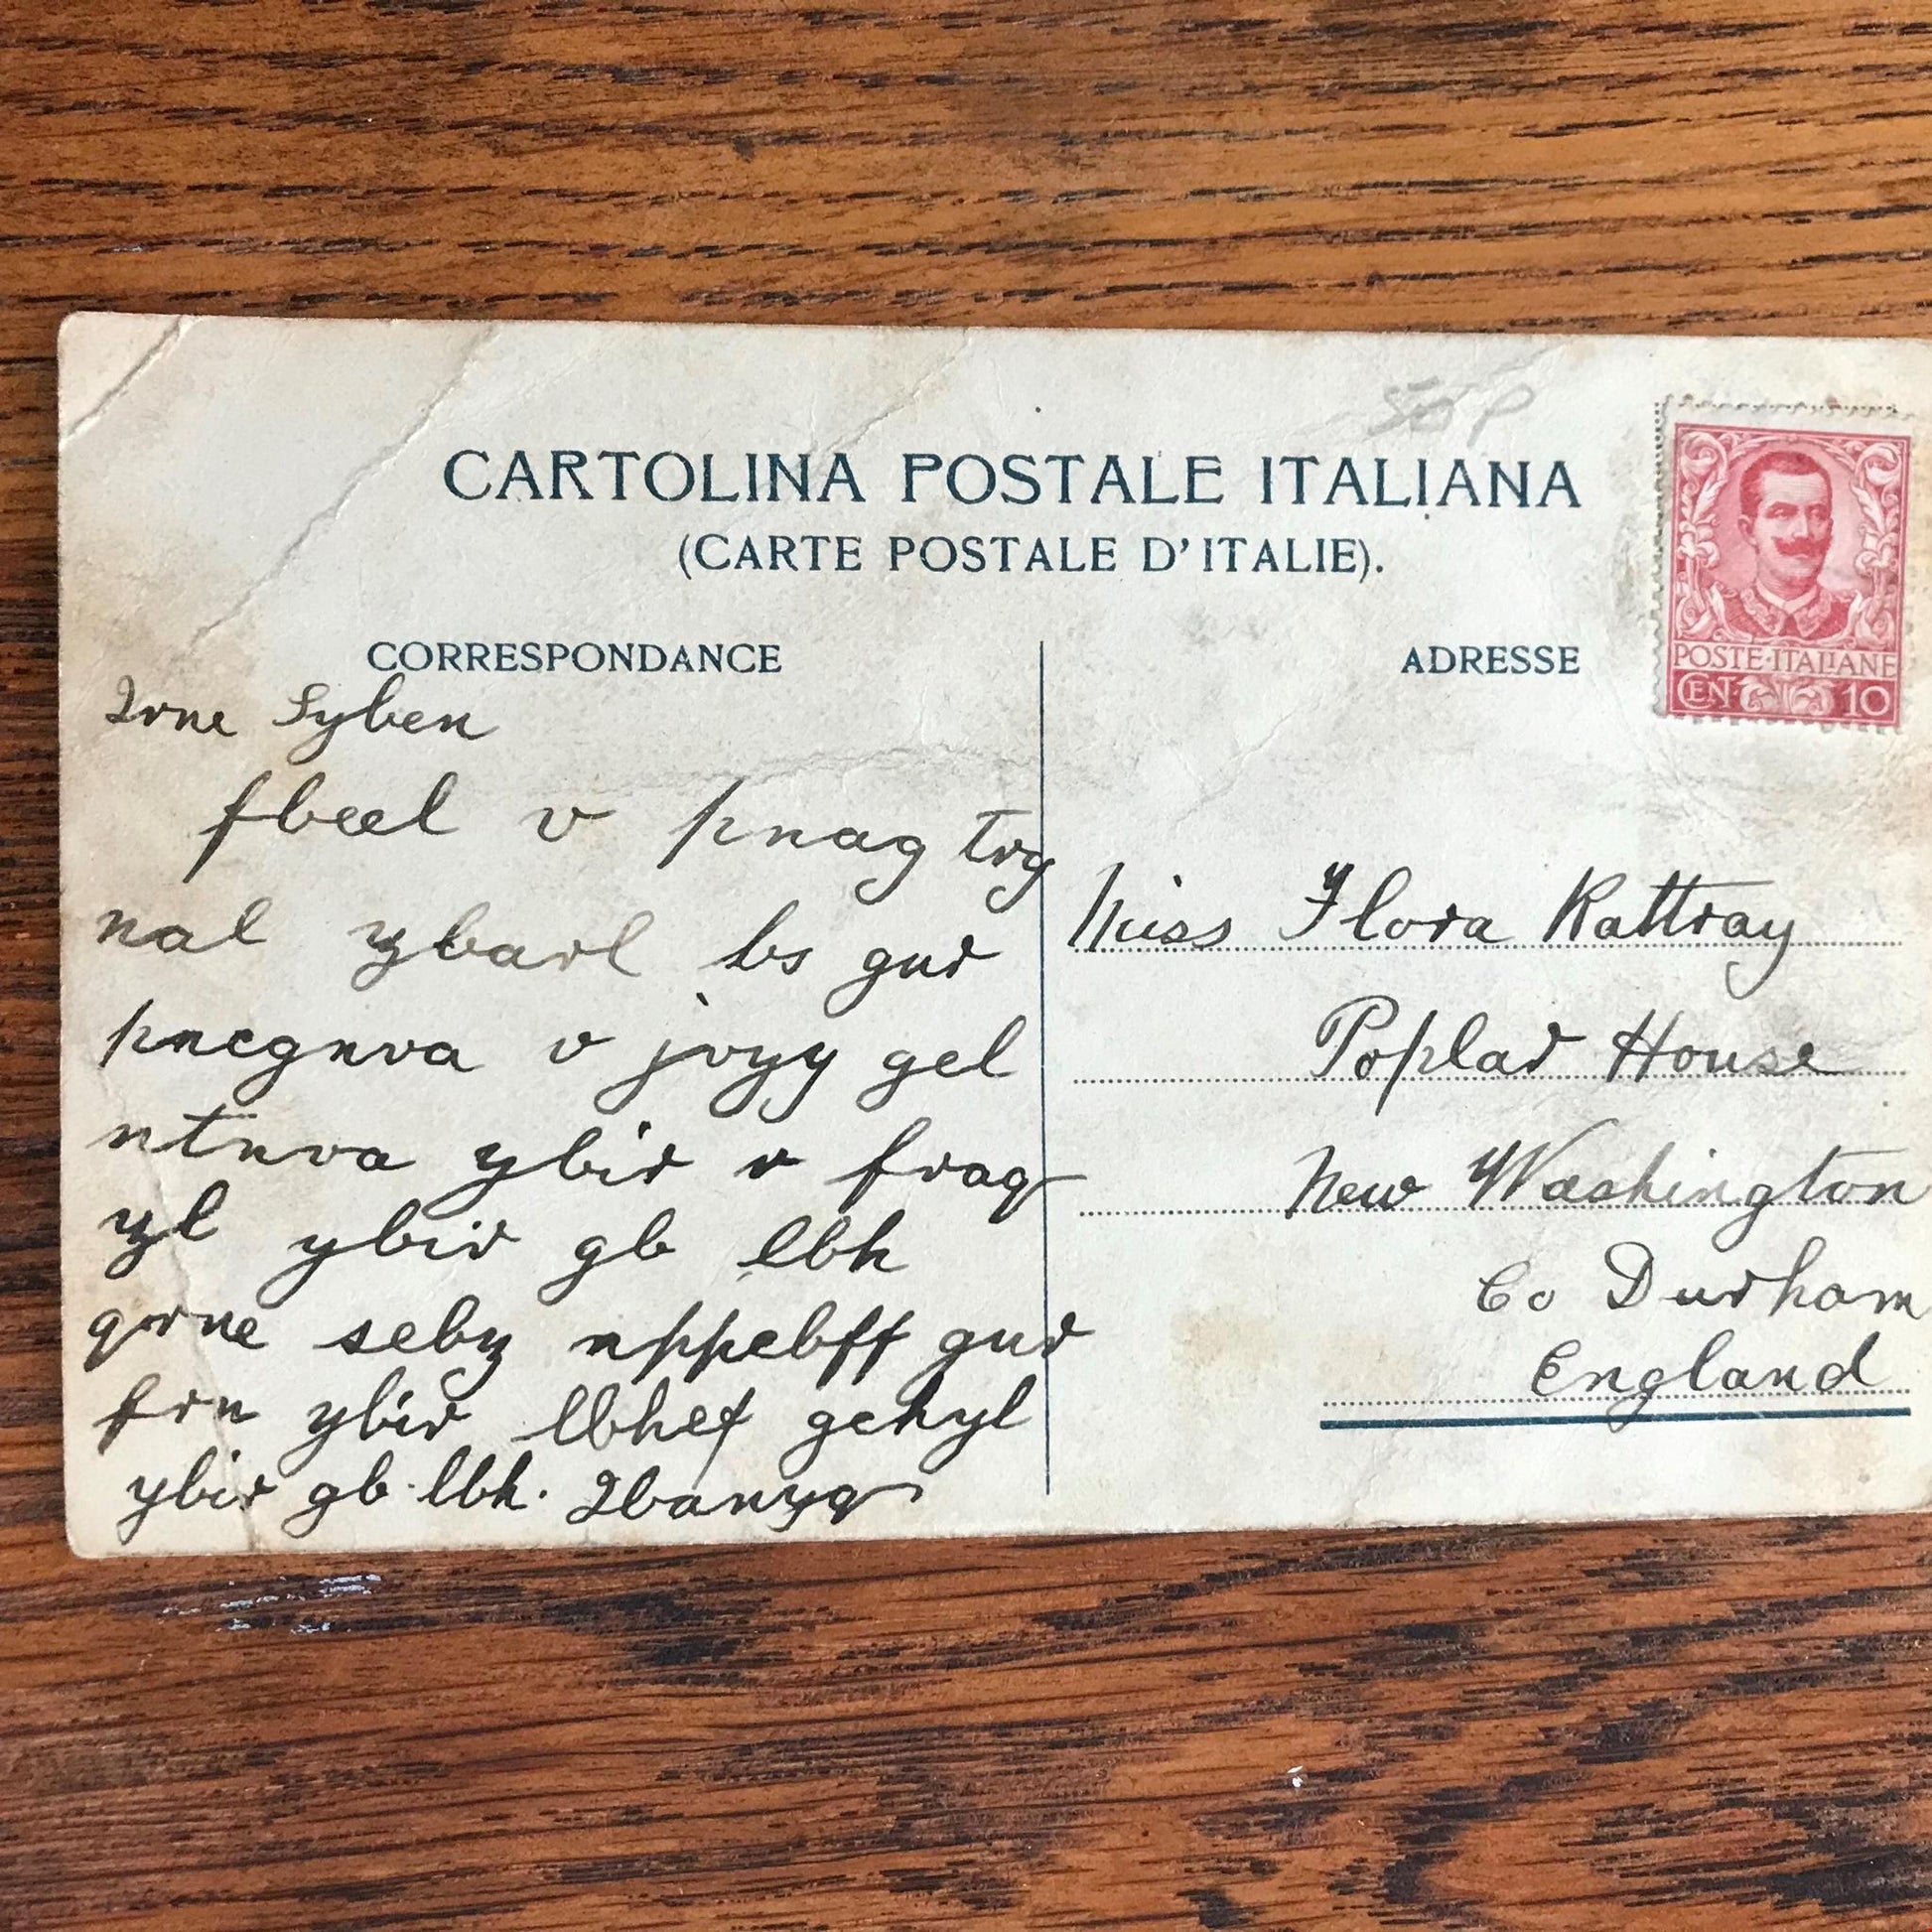 50 P
CARTOLINA POSTALE ITALIANA
(CARTE POSTALE D'ITALIE).
CORRESPONDANCE
Qrne Syben
fbeel v pnag trg
nal zbarl bs gur
pncgnva v jvyy gel
ntnva ybir v fraq
zl ybir gb lbh
qrne sebz nppebff gur
frn ybir lbhef gehyl
ybir gb lbh. Qbanyq
ADRESSE
POSTE·ITALIANE
CEN· 10
Miss Flora Rattray
Poplar House
New Washington
Co Durham
England